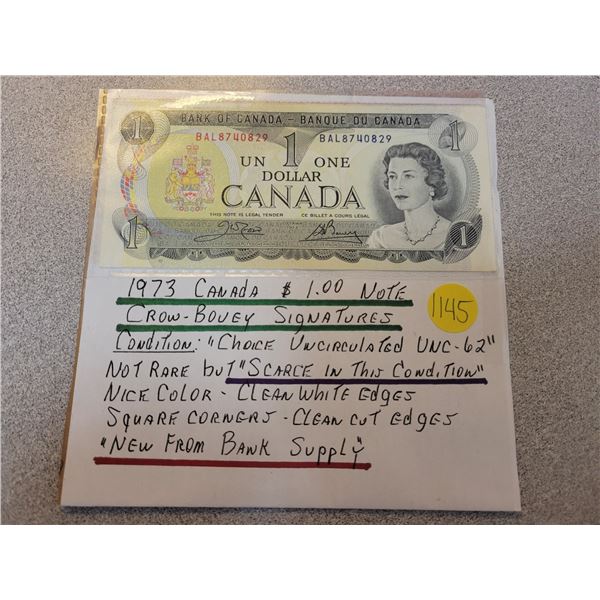 BANK OF CANADA - BANQUE DU CANADA
BAL8740829 BAL8740829
1 1
UN 1 ONE
DOLLAR
CANADA
THIS NOTE IS LEGAL TENDER CE BILLET A COURS LÉGAL
1 1
1973 CANADA $ 1.00 NOTE
CROW-BOUEY SIGNATURES
1145
CONDITION: "CHOICE UNCIRCULATED UNC-62"
NOT RARE but "SCARCE IN THIS CONDITION"
NICE COLOR - CLEAN WHITE EdgES
SQUARE CORNERS - CLEAN CUT EdgES
"NEW FROM BANK SUPPLY"